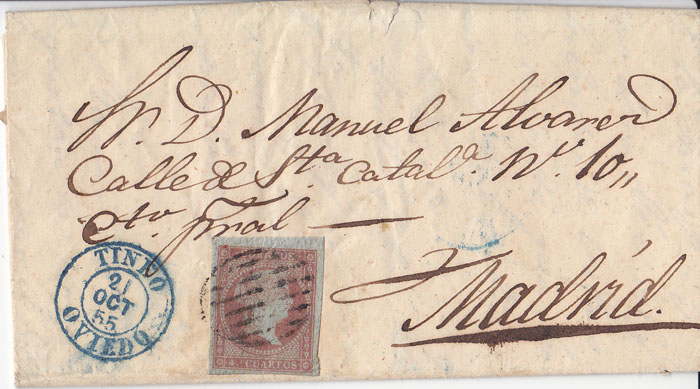 Sr. D. Manuel Alvarez
Calle de Sta. Catala. No. 10,,
Cto. Pral
Madrid.
TINEO
21
OCT
55
OVIEDO
4 CUARTOS